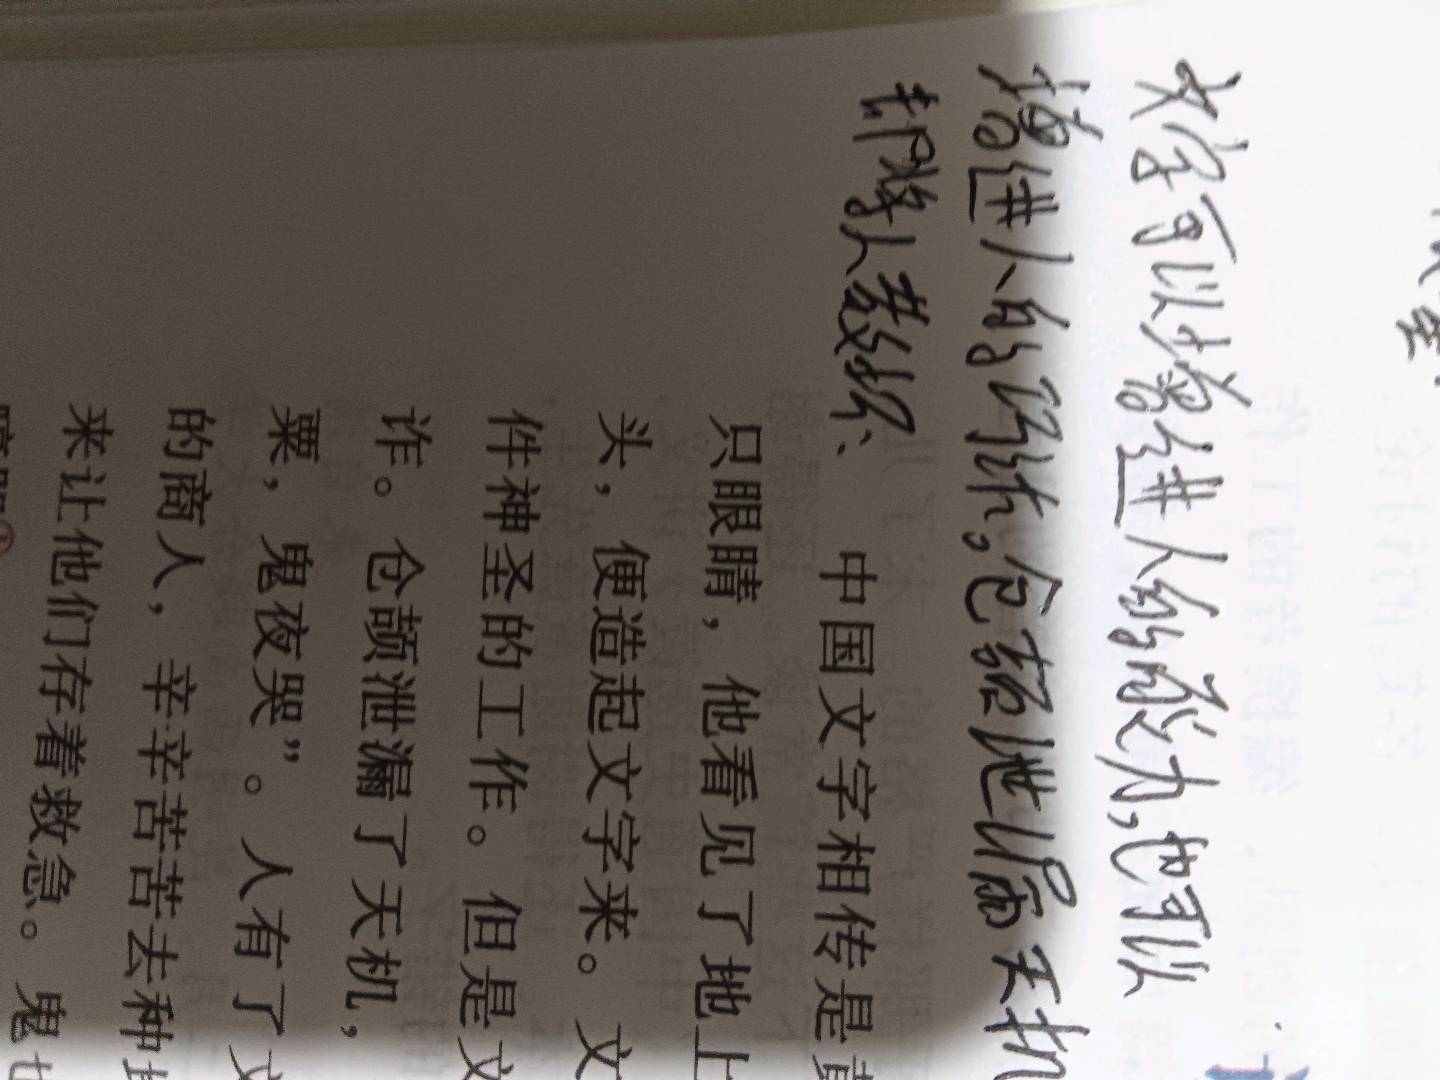 文字可以增进人的能力,也可以
增进人的巧诈。仓颉泄漏天机
却将人教坏、
中国文字相传是黄
只眼睛,他看见了地上
头,便造起文字来。文
件神圣的工作。但是文
诈。仓颉泄漏了天机,
粟,鬼夜哭”。人有了文
的商人,辛辛苦苦去种
来让他们存着救急。鬼也